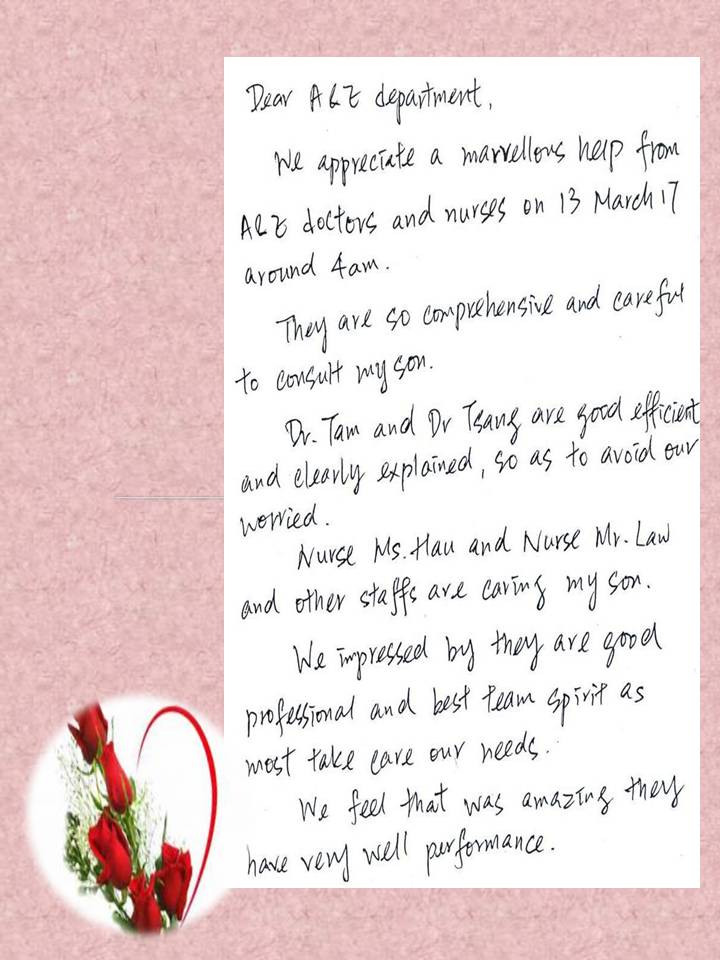 Dear A&E department,
We appreciate a marvellous help from
A&E doctors and nurses on 13 March 17
around 4am.
They are so comprehensive and careful
to consult my son.
Dr. Tam and Dr Tsang are good efficient
and clearly explained, so as to avoid our
worried.
Nurse Ms. Hau and Nurse Mr. Law
and other staffs are caring my son.
We impressed by they are good
professional and best team spirit as
most take care our needs.
We feel that was amazing they
have very well performance.